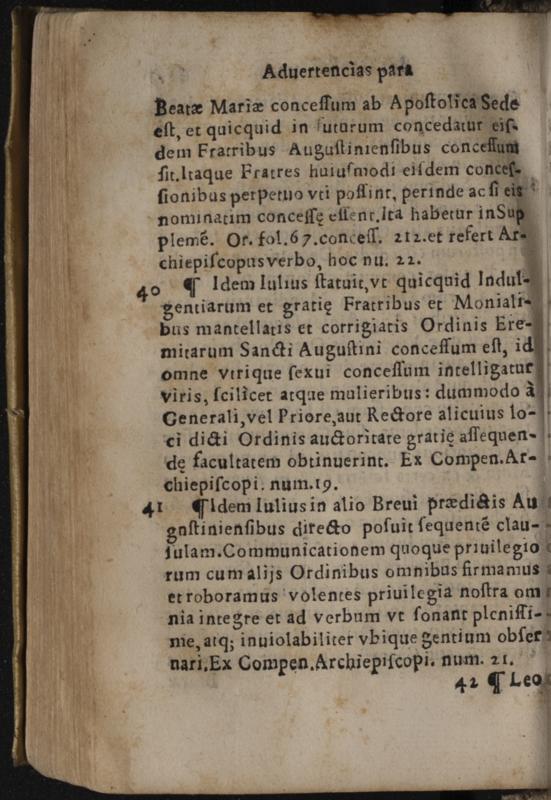 Aduertencias para
Beatæ Mariæ conceſſum ab Apoſtolica Sede
eſt, et quicquid in futurum concedatur eiſ-
dem Fratribus Auguſtinienſibus conceſſum
ſit. Itaque Fratres huiuſmodi eiſdem conceſ-
ſionibus perpetuo vti poſſint, perinde ac ſi eis
nominatim conceſſę eſſent. Ita habetur in Sup
plemē. Or. fol. 67. conceſſ. 212. et refert Ar-
chiepiſcopus verbo, hoc nu. 22.
40 ¶ Idem Iulius ſtatuit, vt quicquid Indul-
gentiarum et gratię Fratribus et Moniali-
bus mantellatis et corrigiatis Ordinis Ere-
mitarum Sancti Auguſtini conceſſum eſt, id
omne vtrique ſexui conceſſum intelligatur
viris, ſcilicet atque mulieribus: dummodo à
Generali, vel Priore, aut Rectore alicuius lo-
ci dicti Ordinis auctoritate gratię aſſequen-
dę facultatem obtinuerint. Ex Compen. Ar-
chiepiſcopi. num. 19.
41 ¶ Idem Iulius in alio Breui prædictis Au
gnſtinienſibus directo poſuit ſequentē clau-
ſulam. Communicationem quoque priuilegio
rum cum alijs Ordinibus omnibus firmamus
et roboramus volentes priuilegia noſtra om
nia integre et ad verbum vt ſonant pleniſſi-
me, atq; inuiolabiliter vbique gentium obſer
nari. Ex Compen. Archiepiſcopi. num. 21.
42 ¶ Leo